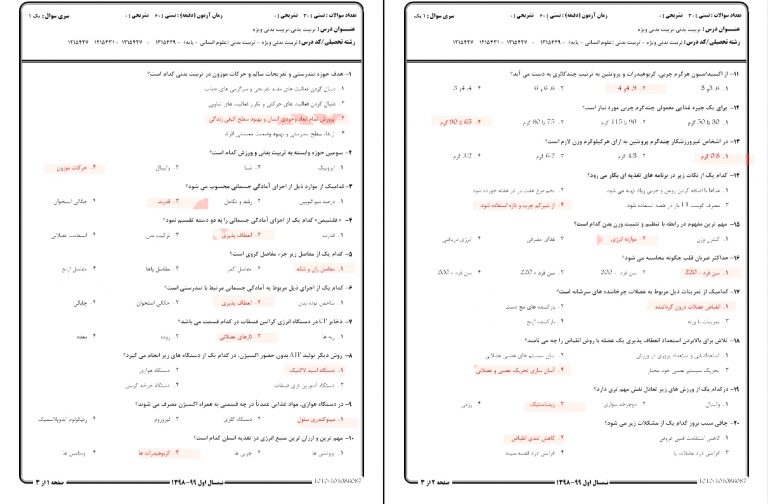 تعداد سوالات : تستی : ۳۰ تشریحی : ۰
زمان آزمون (دقیقه) : تستی : ۶۰ تشریحی : ۰
سری سوال : ۱ یک
عنوان درس : تربیت بدنی، تربیت بدنی ویژه
رشته تحصیلی/کد درس : تربیت بدنی ویژه - تربیت بدنی (علوم انسانی - پایه)
۱- هدف حوزه تندرستی و تفریحات سالم و حرکات موزون در تربیت بدنی کدام است؟
۱. دنبال کردن فعالیت های مفید تفریحی و سرگرمی های جذاب
۲. دنبال کردن فعالیت های حرکتی و تکرر فعالیت های تناوبی
۳. پرورش تمام ابعاد وجودی انسان و بهبود سطح کیفی زندگی
۴. ارتقاء سطح تندرستی و بهبود وضعیت معیشتی افراد
۲- سومین حوزه وابسته به تربیت بدنی و ورزش کدام است؟
۱. ایروبیک ۲. شنا ۳. والیبال ۴. حرکات موزون
۳- کدامیک از موارد ذیل از اجزای آمادگی جسمانی محسوب می شود؟
۱. درصد میوگلوبین ۲. رشد و تکامل ۳. قدرت ۴. چگالی استخوان
۴- «فلشیمن» کدام یک از اجزای آمادگی جسمانی را به دو دسته تقسیم نمود؟
۱. قدرت ۲. انعطاف پذیری ۳. ترکیب بدن ۴. استقامت عضلانی
۵- کدام یک از مفاصل زیر جزء مفاصل کروی است؟
۱. مفاصل ران و شانه ۲. مفاصل کمر ۳. مفاصل پاها ۴. مفاصل آرنج
۶- کدام یک از اجزای ذیل مربوط به آمادگی جسمانی مرتبط با تندرستی است؟
۱. شاخص توده بدن ۲. انعطاف پذیری ۳. چگالی استخوان ۴. چابکی
۷- ذخایر CP در دستگاه انرژی کراتین فسفات در کدام قسمت می باشد؟
۱. ریه ها ۲. تارهای عضلانی ۳. روده ۴. معده
۸- روش دیگر تولید ATP بدون حضور اکسیژن، در کدام یک از دستگاه های زیر انجام می گیرد؟
۱. دستگاه اسید لاکتیک ۲. دستگاه هوازی
۳. دستگاه آدنوزین تری فسفات ۴. دستگاه چرخه کربس
۹- در دستگاه هوازی، مواد غذایی عمدتاً در چه قسمتی به همراه اکسیژن مصرف می شوند؟
۱. میتوکندری سلول ۲. دستگاه گلژی ۳. لیزوزوم ۴. رتیکولوم اندوپلاسمیک
۱۰- مهم ترین و ارزان ترین منبع انرژی در تغذیه انسان کدام است؟
۱. پروتئین ها ۲. چربی ها ۳. کربوهیدرات ها ۴. ویتامین ها
صفحه ۱ از ۴
نیمسال اول ۹۹-۱۳۹۸
1010/101086087
تعداد سوالات : تستی : ۳۰ تشریحی : ۰
زمان آزمون (دقیقه) : تستی : ۶۰ تشریحی : ۰
سری سوال : ۱ یک
عنوان درس : تربیت بدنی، تربیت بدنی ویژه
رشته تحصیلی/کد درس : تربیت بدنی ویژه - تربیت بدنی (علوم انسانی - پایه)
۱۱- از اکسیداسیون هرگرم چربی، کربوهیدرات و پروتئین به ترتیب چندکالری به دست می آید؟
۱۲- برای یک جیره غذایی معمولی چندگرم چربی مورد نیاز است؟
۱. 30 تا 50 گرم ۲. 90 تا 115 گرم ۳. 75 تا 80 گرم ۴. 65 تا 90 گرم
۱۳- در اشخاص غیرورزشکار چندگرم پروتئین به ازای هرکیلوگرم وزن لازم است؟
۱۴- کدام یک از نکات زیر در برنامه های تغذیه ای بکار می رود؟
۱. غذاها با اضافه کردن روغن و چربی زیاد تهیه می شود. ۲. تخم مرغ هفت بار در هفته خورده شود.
۳. مصرف گوشت 14 بار در هفته استفاده شود. ۴. از شیرکم چرب و تازه استفاده شود.
۱۵- مهم ترین مفهوم در رابطه با تنظیم و تثبیت وزن بدن کدام است؟
۱. کنترل وزن ۲. موازنه انرژی ۳. غذای مصرفی ۴. انرژی دریافتی
۱۶- حداکثر ضربان قلب چگونه محاسبه می شود؟
۱. سن فرد - 220 ۲. سن فرد - 200 ۳. سن فرد + 220 ۴. سن فرد + 200
۱۷- کدامیک از تمرینات ذیل مربوط به عضلات چرخاننده های سرشانه است؟
۱. انقباض عضلات درون گرداننده ۲. بازکننده های مچ دست
۳. تمرینات با وزنه ۴. بازکننده آرنج
۱۸- تلاش برای بالابردن استعداد انعطاف پذیری یک عضله با روش انقباض را چه می نامند؟
۱. استعدادیابی و استعداد پروری در ورزش ۲. سان سیستم های عصبی عضلانی
۳. تحریک سیستم عصبی خود مختار ۴. آسان سازی تحریک عصبی و عضلانی
۱۹- درکدام یک از ورزش های زیر تعادل نقش مهم تری دارد؟
۱. والیبال ۲. دوچرخه سواری ۳. ژیمناستیک ۴. رزمی
۲۰- چاقی سبب بروز کدام یک از مشکلات زیر می شود؟
۱. کاهش استقامت قلبی عروقی ۲. کاهش تندی انقباض
۳. افزایش درد عضلات پا ۴. افزایش درد قفسه سینه
صفحه ۲ از ۴
نیمسال اول ۹۹-۱۳۹۸
1010/101086087